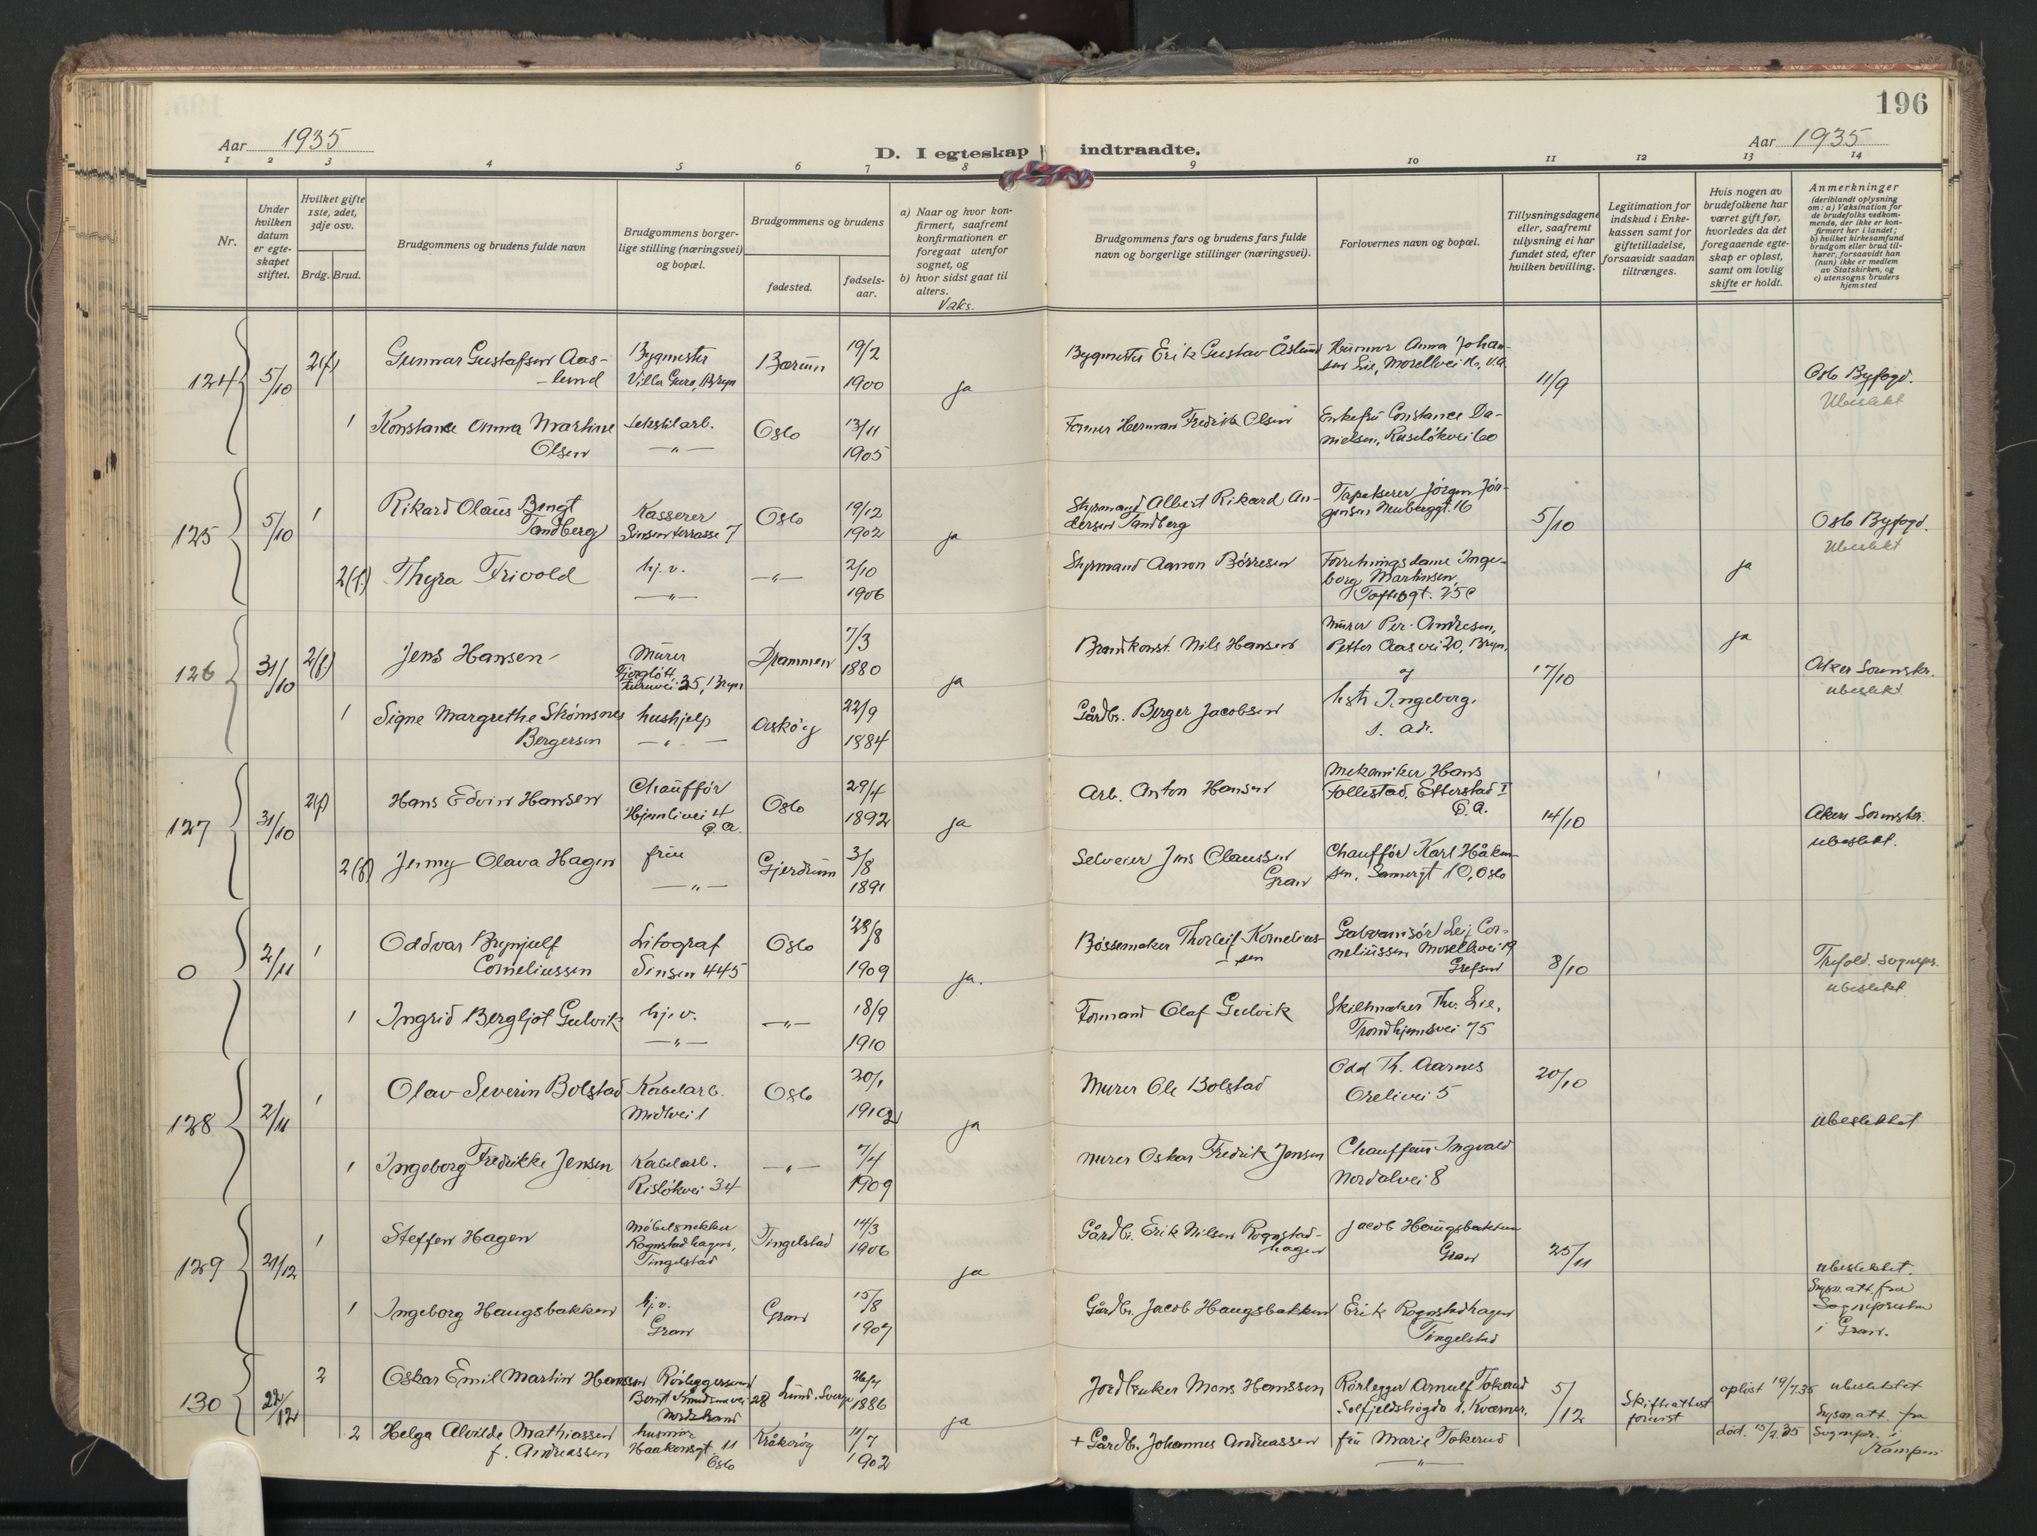 196
Aar 1935
D. I egteskap indtraadte.
Aar 1935
1 2 3 4 5 6 7 8 9 10 11 12 13 14
Nr.
Under hvilken datum er egteskapet stiftet.
Hvilket gifte 1ste, 2det, 3dje osv.
Brdg. Brud.
Brudgommens og brudens fulde navn
Brudgommens borgerlige stilling (næringsvei) og bopæl.
Brudgommens og brudens
fødested.
fødselsaar.
a) Naar og hvor konfirmert, saafremt konfirmationen er foregaat utenfor sognet, og
b) hvor sidst gaat til alters.
Vaks.
Brudgommens fars og brudens fars fulde navn og borgerlige stillinger (næringsvei).
Forlovernes navn og bopæl.
Tillysningsdagene eller, saafremt tillysning ei har fundet sted, efter hvilken bevilling.
Legitimation for indskud i Enkekassen samt for giftetilladelse, forsaavidt saadan tiltrænges.
Hvis nogen av brudefolkene har været gift før, hvorledes da det foregaaende egteskap er opløst, samt om lovlig skifte er holdt.
Anmerkninger
(deriblandt oplysning om: a) Vaksination for de brudefolks vedkommende, der ikke er konfirmert her i landet;
b) hvilket kirkesamfund brudgom eller brud tilhører, forsaavidt han (hun) ikke er medlem av Statskirken, og
c) utensogns bruders hjemsted
124 5/10 2(f) Gunnar Gustafsen Aaslund Bygmester Villa Guro, Bryn Bærum 19/2 1900 ja Bygmester Erik Gustav Åslund Anna Johansen Lie, Morellvei 16, V.A. 11/9 Oslo Byfogd. Ubeslekt
1 Konstance Anna Martine Olsen Tekstilarb. —"— Oslo 13/11 1905 Former Herman Fredrik Olsen Enkefru Constance Danielsen, Ruseløkvei 60
125 5/10 1 Rikard Olaus Bengt Tandberg Kasserer Sinsenterrasse 7 Oslo 19/12 1902 ja Styrmand Albert Rikard Andersen Tandberg Tapetserer Jørgen Jørgensen Neuberggt. 16 5/10 Oslo Byfogd. Ubeslekt
2(f.) Thyra Frivold hj.v. —"— —"— 2/10 1906 Styrmand Aanon Børresen Forretningsdame Ingeborg Martinsen, Toftesgt. 25c ja
126 31/10 2(f) Jens Hansen Murer Furuvei 25, Bryn Drammen 7/3 1880 ja Brandkonst. Nils Hansen Murer Per Andresen, Petter Aasvei 20, Bryn, og 17/10 ja Aker Sorenskr. ubeslekt
1 Signe Margrethe Skómsnes Bergersen hushjelp —"— Askøy 22/9 1884 Gårdbr. Berger Jacobsen hstr Ingeborg, s. adr.
127 31/10 2(f) Hans Edvin Hansen Chauffør Hjemlivei 4 Ø.A. Oslo 29/4 1892 ja Arb. Anton Hansen Mekaniker Hans Follestad, Etterstad I Ø.A. 14/10 Akers Sorenskr. ubeslekt.
2(f) Jenny Olava Hagen frue —"— Gjerdrum 3/8 1891 Selveier Jens Claussen Gran Chauffør Karl Håkensen, Sannergt 10, Oslo
0 2/11 1 Oddvar Brynjulf Corneliussen Litograf Sinsen 445 Oslo 28/8 1909 ja. Bøssemaker Thorleif Korneliussen Galvanisør Leif Corneliussen Morellvei 19 Grefsen 8/10 Trefold. sognepr. ubeslekt
1 Ingrid Bergljot Gulvik hj.v. —"— —"— 18/9 1910 Formand Olaf Gulvik Skiltmaker Thv. Lie, Trondhjemsvei 75
128 2/11 1 Olav Severin Bolstad Kabelarb. Midtvei 1 Oslo 30/1 1912 ja Murer Ole Bolstad Odd Th. Aarnes Orelivei 5 20/10 ubeslektet
1 Ingeborg Fredrikke Jensen Kabelarb. Risløkvei 34 —"— 7/4 1909 Murer Oskar Fredrik Jensen Chauffeur Ingvald Nordalvei 8
129 21/12 1 Steffen Hagen Møbelsnekker Rognstadhagen, Tingelstad Tingelstad 14/3 1906 ja Gårdbr. Erik Nilsen Rognstadhagen Jacob Haugsbakken Gran 25/11 ubeslektet.
1 Ingeborg Haugsbakken hj.v. Gran Gran 15/8 1907 Gårdbr. Jacob Haugsbakken Erik Rognstadhagen Tingelstad Lysn. att. fra Sognepresten i Gran.
130 22/12 2 Oskar Emil Martin Hanssen Rørleggersvend Bernt Knudsensvei 28 Nordstrand Lund, Sverge 1886 ja Jordbruker Mons Hanssen Rørlegger Arnulf Tokerud Solfjeldshøgda 1. Kværner. 5/12 Skifteattest forevist opløst 19/7.35 ubeslektet
2 Helga Alvilde Mathiassen f. Andreassen husmor Haakonsgt 11 Oslo Kråkerøy 11/7 1902 + Gårdb. Johannes Andreassen fru Marie Tokerud —"— død. 15/2.35 Lysn. att. fra Sognepr. i Kampen